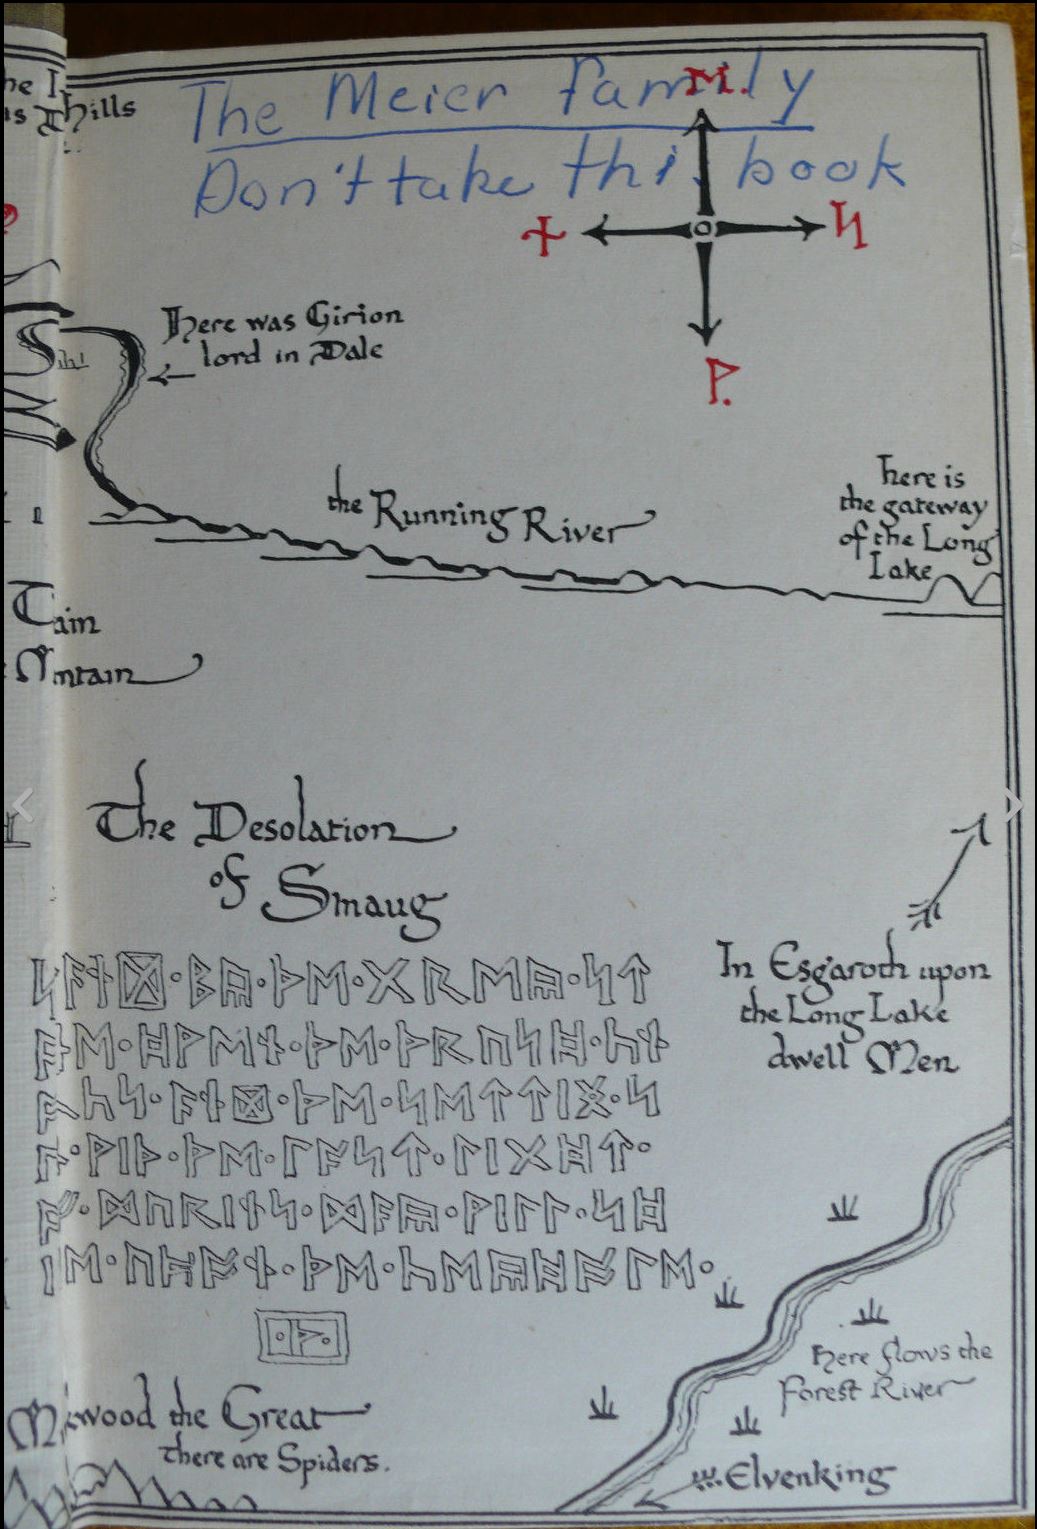 hills
The Meier family
Don't take this book
ᛖ.
ᚾ ᛋ
ᚹ.
Here was Girion
lord in Dale
Here is
the gateway
of the Long
Lake
the Running River
Tain
The Desolation
of Smaug
In Esgaroth upon
the Long Lake
dwell Men
·ᛒᚣ·ᚦᛖ·ᚷᚱᛖᚣ·ᛋᛏ
·ᚻᚹᛖᚾ·ᚦᛖ·ᚦᚱᚢᛋᚻ·ᚳᚾ
ᚩᚳᛋ·ᚪᚾᛞ·ᚦᛖ·ᛋᛖᛏᛏᛁᛝ·ᛋ
·ᚹᛁᚦ·ᚦᛖ·ᛚᚪᛋᛏ·ᛚᛁᚷᚻᛏ·
·ᛞᚢᚱᛁᚾᛋ·ᛞᚪᚣ·ᚹᛁᛚᛚ·ᛋᚻ
·ᚢᛈᚩᚾ·ᚦᛖ·ᚳᛖᚣᚻᚩᛚᛖ·
·ᚦ·
Here flows the
Forest River
the Great
There are Spiders.
Elvenking